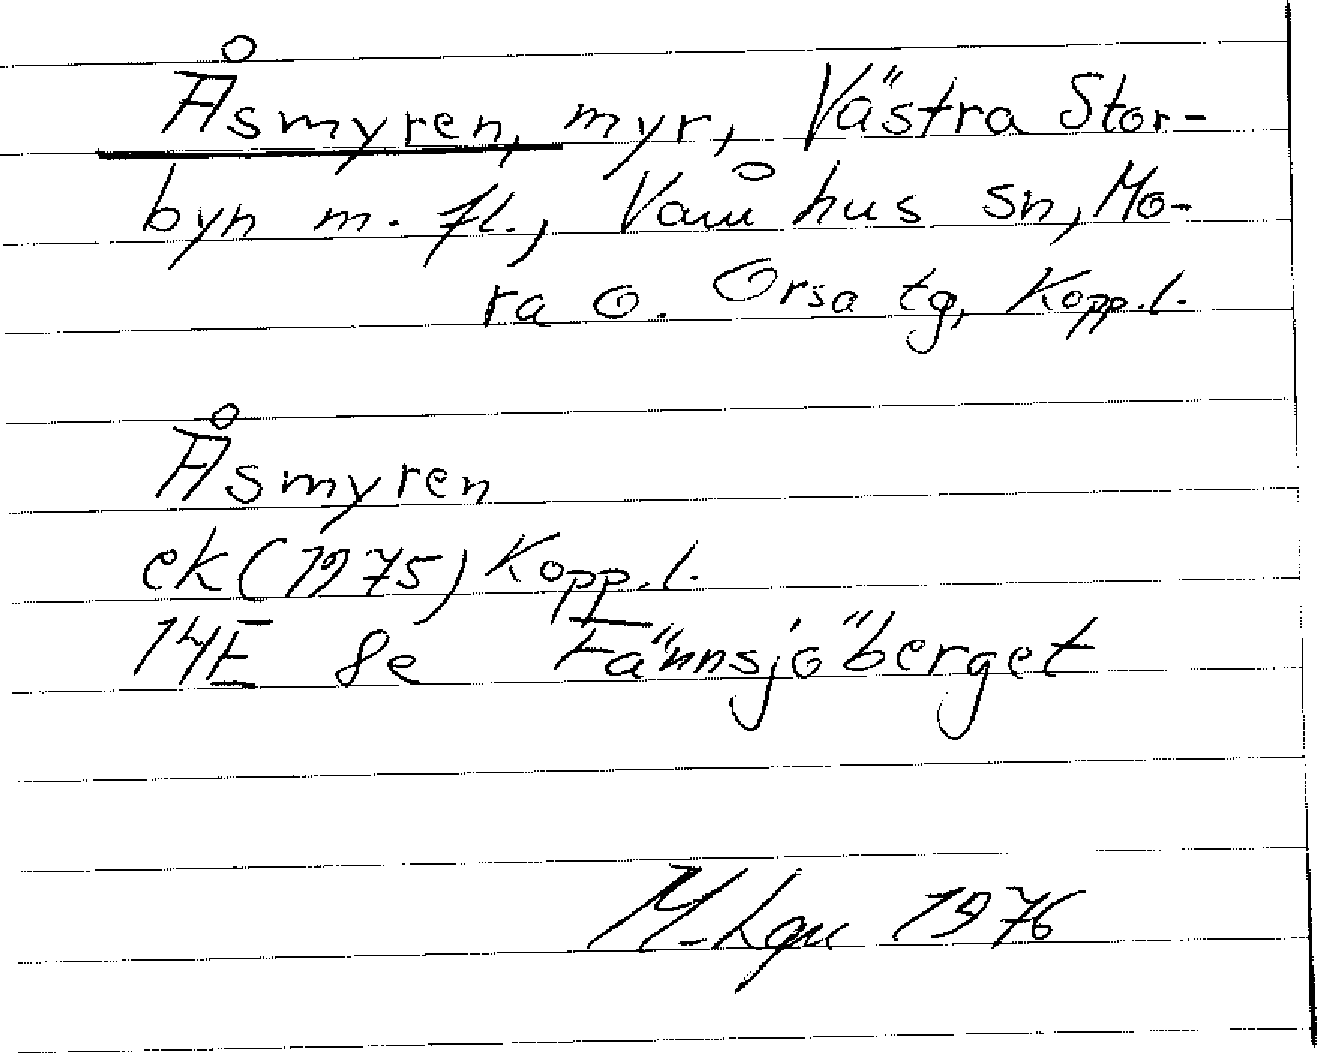 Åsmyren, myr, Västra Stor-
byn m. fl., Våmhus sn, Mo-
ra o. Orsa tg, Kopp.l.
Åsmyren
ek (1975) Kopp.l.
14E 8e Fännsjöberget
1976